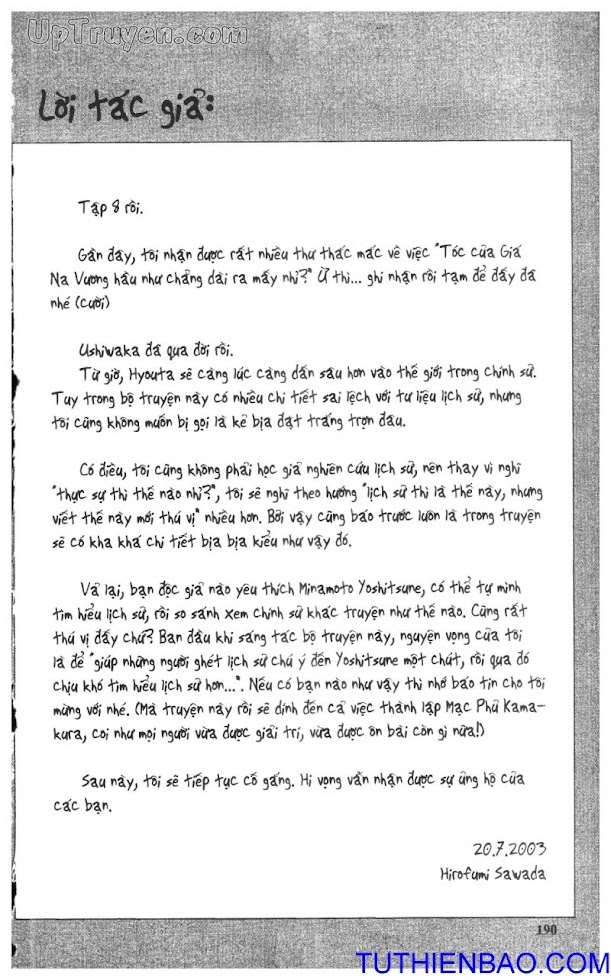 UpTruyen.com
Lời tác giả:
Tập 8 rồi.
Gần đây, tôi nhận được rất nhiều thư thắc mắc về việc "Tóc của Giá
Na Vương hầu như chẳng dài ra mấy nhỉ?" Ừ thì... ghi nhận rồi tạm để đấy đã
nhé (cười)
Ushiwaka đã qua đời rồi.
Từ giờ, Hyouta sẽ càng lúc càng dấn sâu hơn vào thế giới trong chính sử.
Tuy trong bộ truyện này có nhiều chi tiết sai lệch với tư liệu lịch sử, nhưng
tôi cũng không muốn bị gọi là kẻ bịa đặt trắng trợn đâu.
Có điều, tôi cũng không phải học giả nghiên cứu lịch sử, nên thay vì nghĩ
"thực sự thì thế nào nhỉ?", tôi sẽ nghĩ theo hướng "lịch sử thì là thế này, nhưng
viết thế này mới thú vị" nhiều hơn. Bởi vậy cũng báo trước luôn là trong truyện
sẽ có kha khá chi tiết bịa bịa kiểu như vậy đó.
Vả lại, bạn độc giả nào yêu thích Minamoto Yoshitsune, có thể tự mình
tìm hiểu lịch sử, rồi so sánh xem chính sử khác truyện như thế nào. Cũng rất
thú vị đấy chứ? Ban đầu khi sáng tác bộ truyện này, nguyện vọng của tôi
là để "giúp những người ghét lịch sử chú ý đến Yoshitsune một chút, rồi qua đó
chịu khó tìm hiểu lịch sử hơn...". Nếu có bạn nào như vậy thì nhớ báo tin cho tôi
mừng với nhé. (Mà truyện này rồi sẽ dính đến cả việc thành lập Mạc Phủ Kama-
kura, coi như mọi người vừa được giải trí, vừa được ôn bài còn gì nữa!)
Sau này, tôi sẽ tiếp tục cố gắng. Hi vọng vẫn nhận được sự ủng hộ của
các bạn.
20.7.2003
Hirofumi Sawada
190
TUTHIENBAO.COM